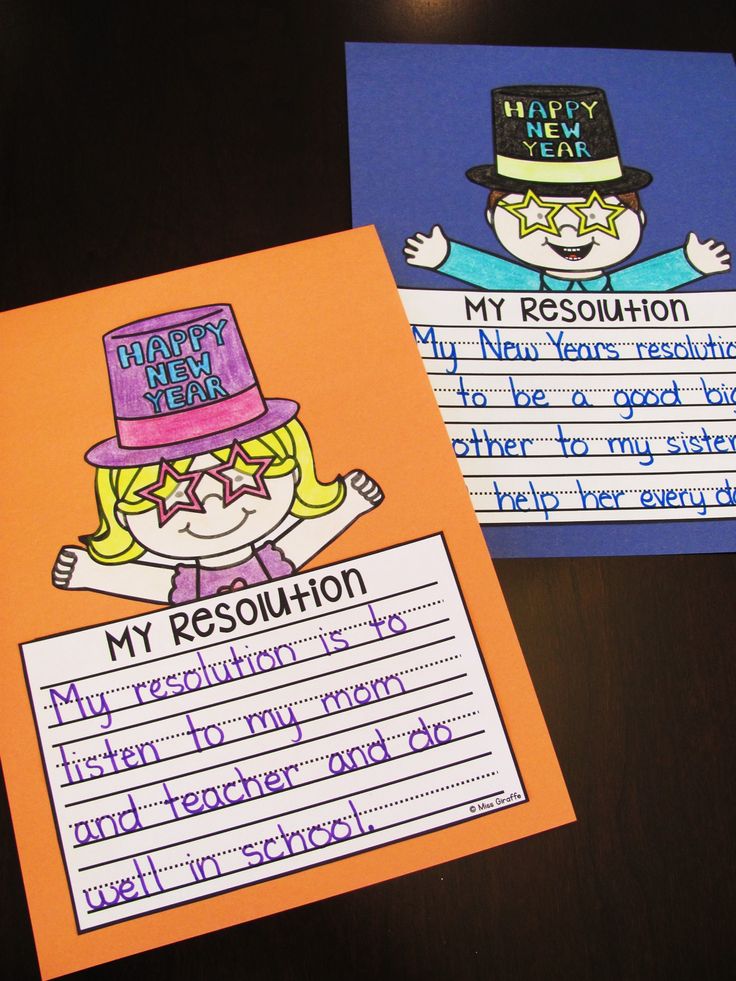 HAPPY
NEW
YEAR
MY RESOLUTION
My New Years resolutio
to be a good big
other to my sister
help her every da
HAPPY
NEW
YEAR
MY RESOLUTION
My resolution is to
listen to my mom
and teacher and do
well in school.
© Miss Giraffe